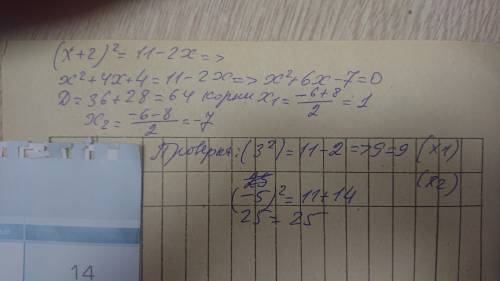 (x+2)² = 11-2x =>
x²+4x+4=11-2x=> x²+6x-7=0
D=36+28=64 корни x₁= (-6+8)/2 = 1
x₂= (-6-8)/2 = -7
Проверка: (3²)=11-2 =>9=9 (x1)
(-5)² = 11+14 (x2)
25 = 25
14